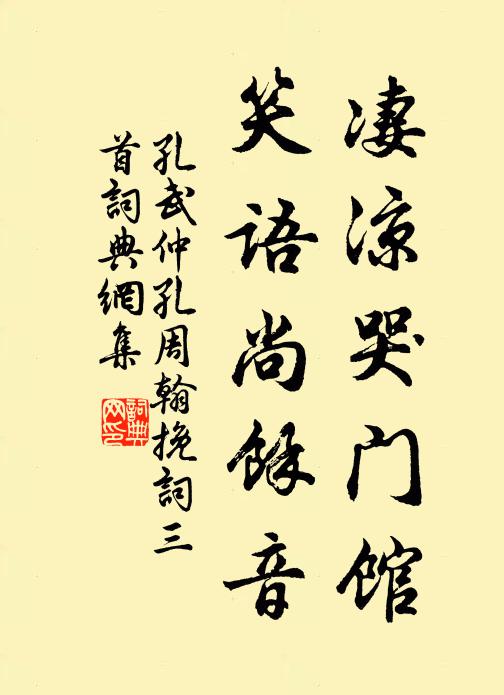 凄凉哭门馆
笑语尚馀音
孔武仲孔周翰挽词三
首词典網集
詞典網印